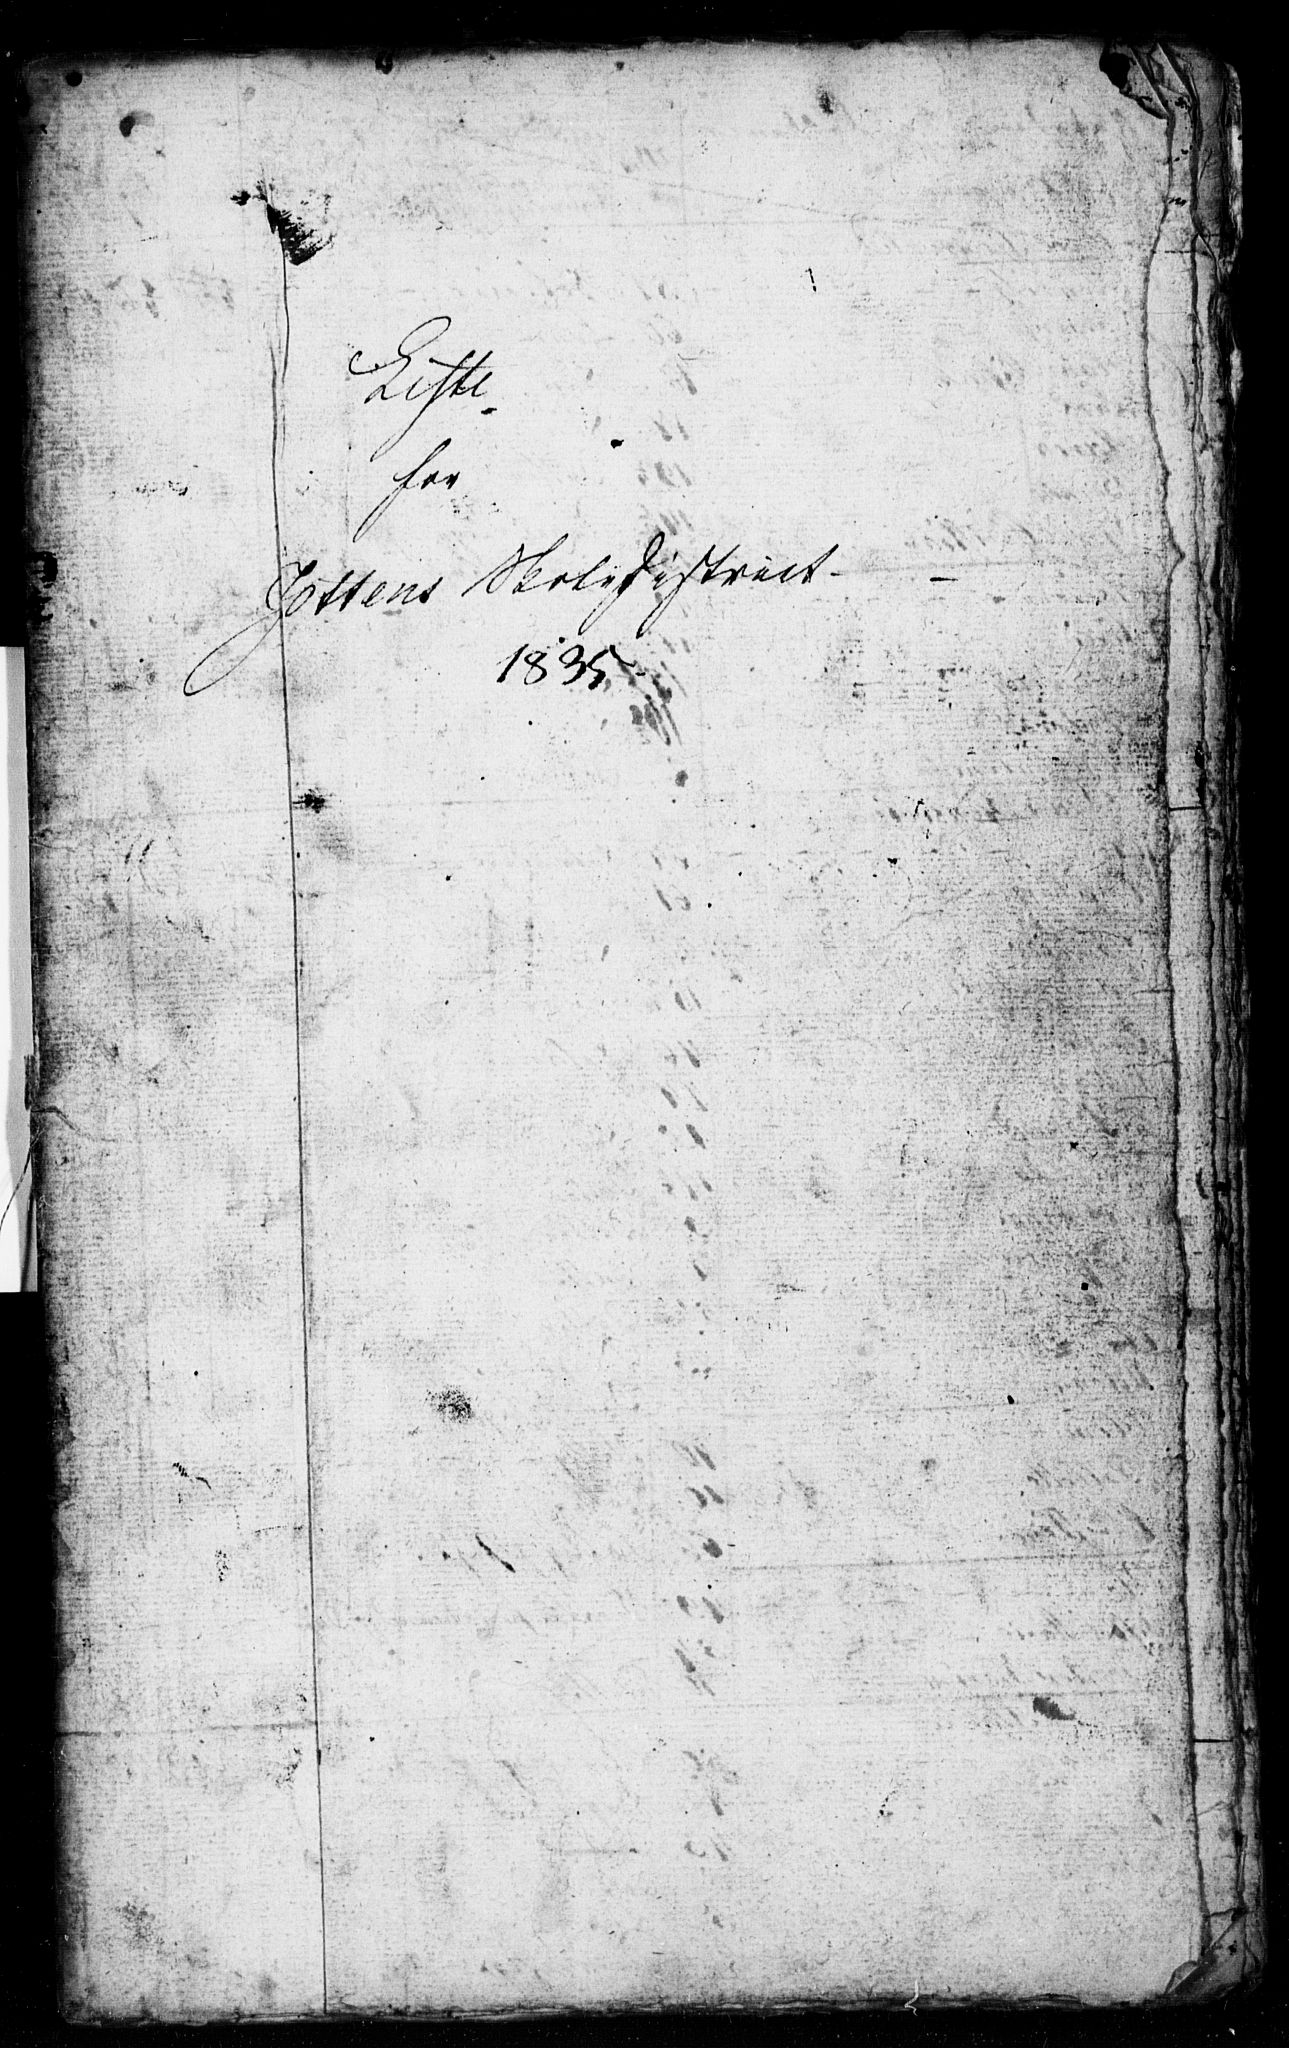 Liste
for
Jottens Skoledistrict
1835